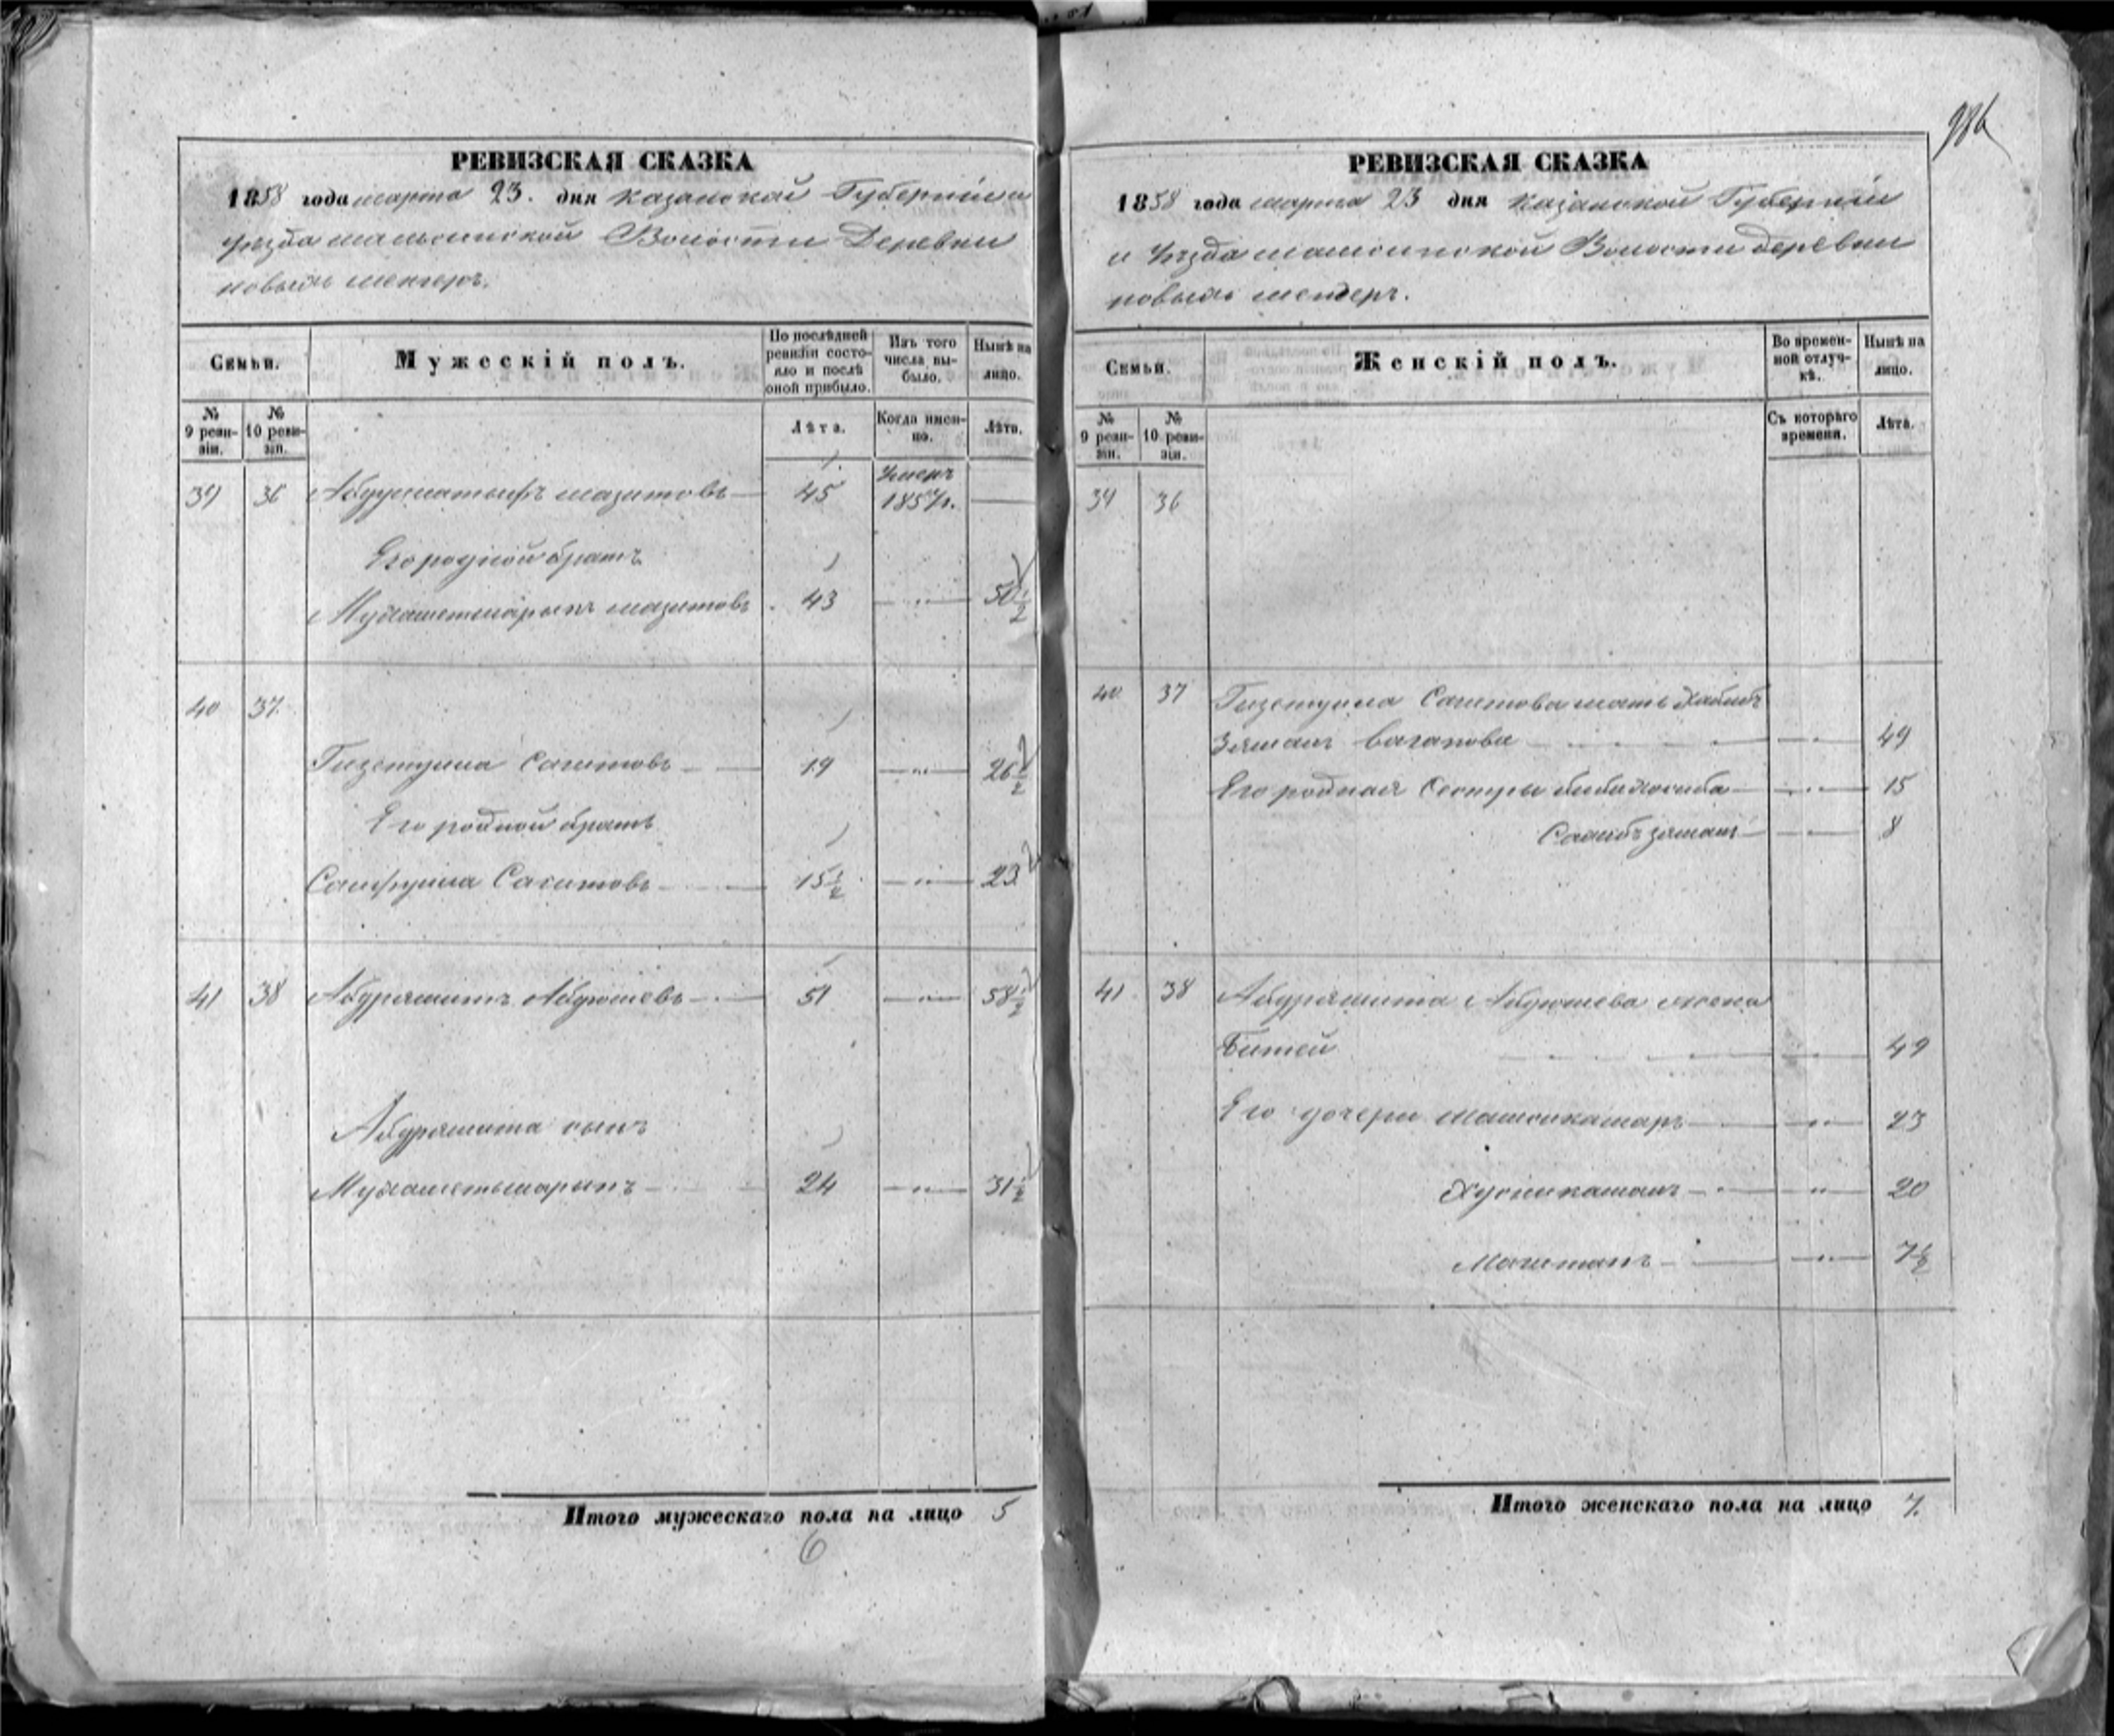 986
РЕВИЗСКАЯ СКАЗКА
1858 года марта 23. дня Казанской Губерніи и
уѣзда Мамсинской Волости Деревни
новыхъ менгеръ.
Семьи.
Мужескій полъ.
По послѣдней ревизіи состояло и послѣ оной прибыло.
Изъ того числа выбыло.
Нынѣ на лицо.
№ 9 ревизіи.
№ 10 ревизіи.
Лѣта.
Когда именно.
Лѣта.
39 36 мазитовъ — 45 Умеръ 1857 г. —
Его родной братъ
мазитовъ 43 — " — 50 1/2
40 37
Гизетулла Сагитовъ — 19 — " — 26 1/2
Его родной братъ
Сайфулла Сагитовъ — 15 1/2 — " — 23
41 38 Абдряшитъ Абдюшевъ — 51 — " — 58 1/2
Абдряшита сынъ
Мухаметьшарыпъ — 24 — " — 31 1/2
Итого мужескаго пола на лицо 5
6
РЕВИЗСКАЯ СКАЗКА
1858 года марта 23 дня Казанской Губерніи
и Уѣзда Мамсинской Волости деревни
новыхъ менгеръ.
Семьи.
Женскій полъ.
Во временной отлучкѣ.
Нынѣ на лицо.
№ 9 ревизіи.
№ 10 ревизіи.
Съ котораго времени.
Лѣта.
39 36
40 37 Гизетулла Сагитова мать Хабиб
зямалъ Вагапова — " — 49
Его родная Сестры — " — 15
— " — 8
41 38 Абдряшита Абдюшева жена
Битей — " — 49
Его дочери — " — 23
— " — 20
— " — 7 1/2
Итого женскаго пола на лицо 7.